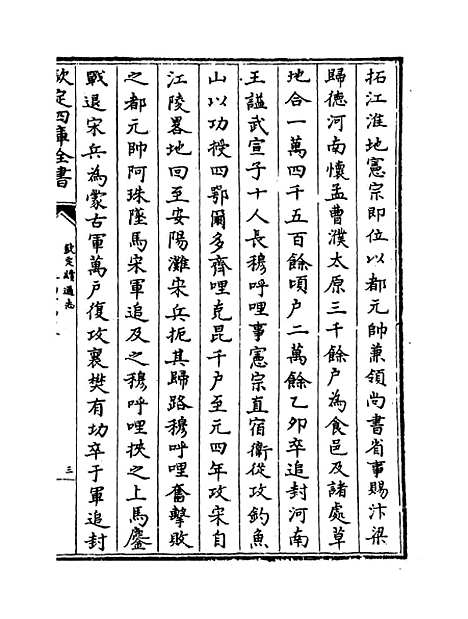 拓江淮地憲宗即位以都元帥兼領尚書省事賜汴梁
歸德河南懷孟曹濮太原三千餘户為食邑及諸處草
地合一萬四千五百餘頃户二萬餘乙卯卒追封河南
王諡武宣子十人長穆呼哩事憲宗直宿衞從攻釣魚
山以功授四鄂爾多齊哩克昆千户至元四年攻宋自
江陵畧地回至安陽灘宋兵扼其歸路穆呼哩奮擊敗
之都元帥阿珠墜馬宋軍追及之穆呼哩挾之上馬鏖
戰退宋兵為蒙古軍萬户復攻襄樊有功卒于軍追封
欽定四庫全書
欽定續通志
三